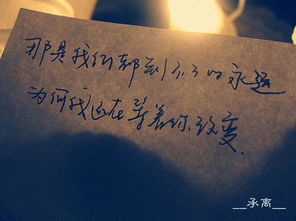 那是我们都到不了的永远
为何我还在等着你改变
__承离__